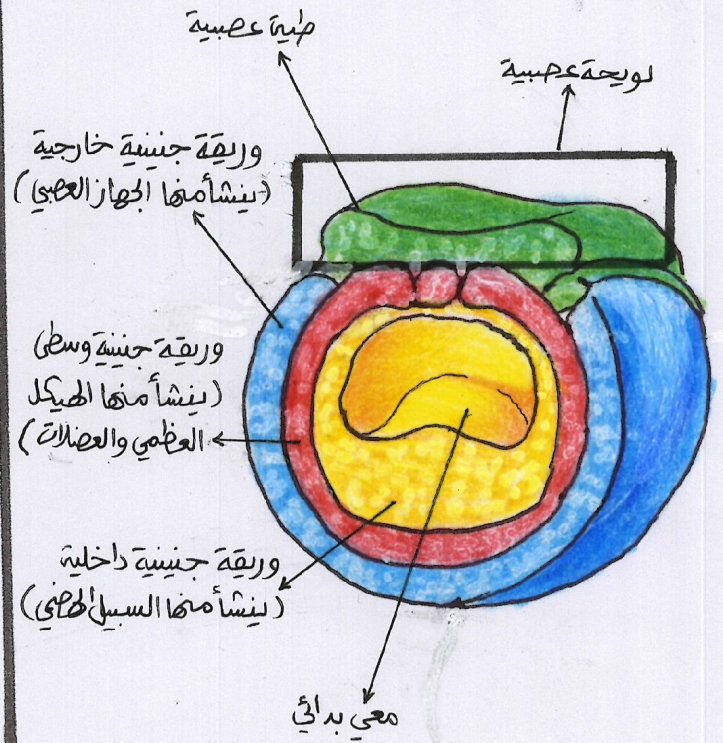 طية عصبية
لويحة عصبية
وريقة جنينية خارجية
(ينشأ منها الجهاز العصبي)
وريقة جنينية وسطى
(ينشأ منها الهيكل
العظمي والعضلات)
وريقة جنينية داخلية
(ينشأ منها السبيل الهضمي)
معي بدائي